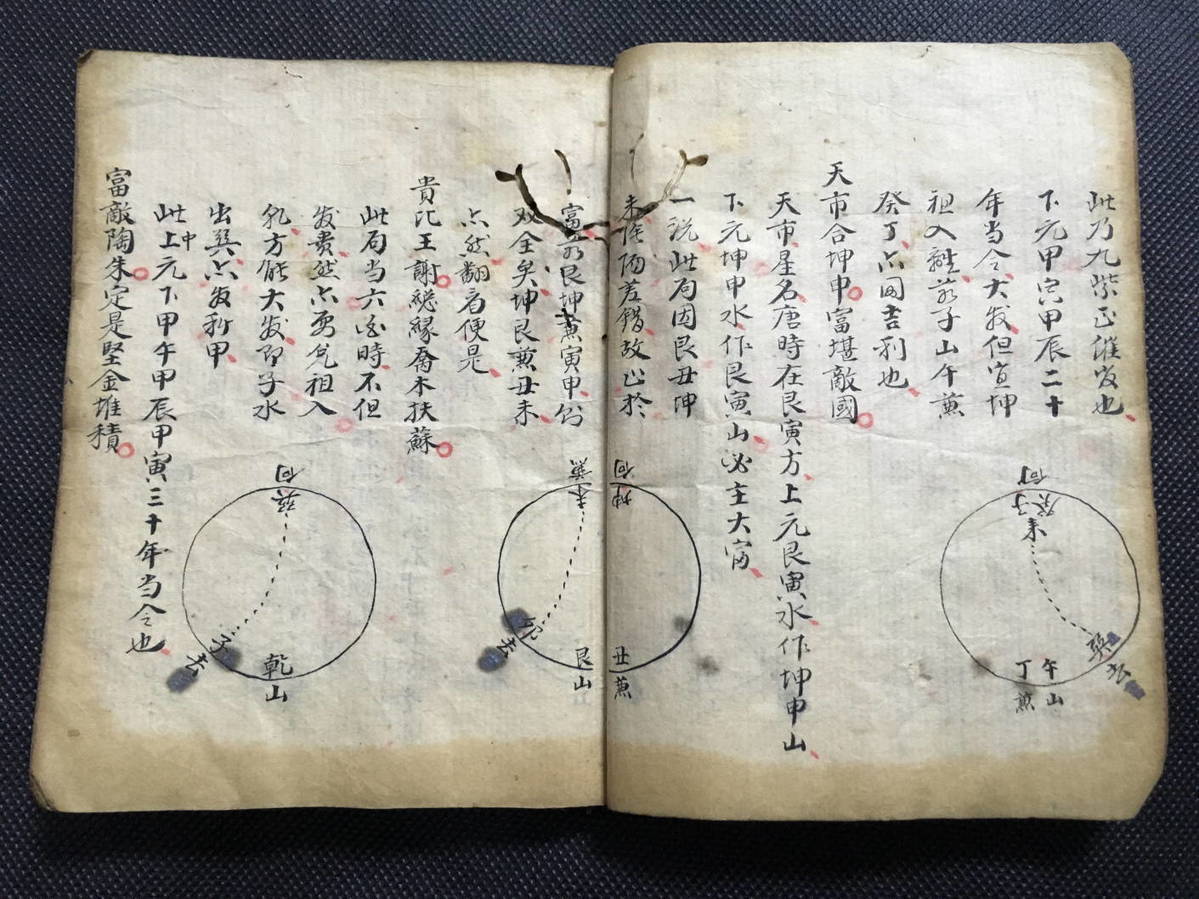 此乃九紫正催官也
下元甲寅甲辰二十
年当令大发但宜坤
祖入 若子山午兼
癸丁亦固吉利也
天市合坤申富堪敵國
天市星名唐時在艮寅方上元艮寅水作坤申山
下元坤申水作艮寅山必主大富
一说此局因艮丑坤
未陰陽差錯故止於
富若艮坤兼寅申
双全矣坤艮兼丑未
亦然翻看便是
貴比王謝 緣喬木扶蘇
此局当六 時不但
发貴然亦要 祖入
乳方能大发即子水
出巽亦发科甲
此上中元下甲午甲辰甲寅三十年当令也
富敵陶朱定是堅金堆積
向
癸子
来
巽去
午山
丁兼
坤向
兼
丑兼
艮山
去
向
子去
乾山